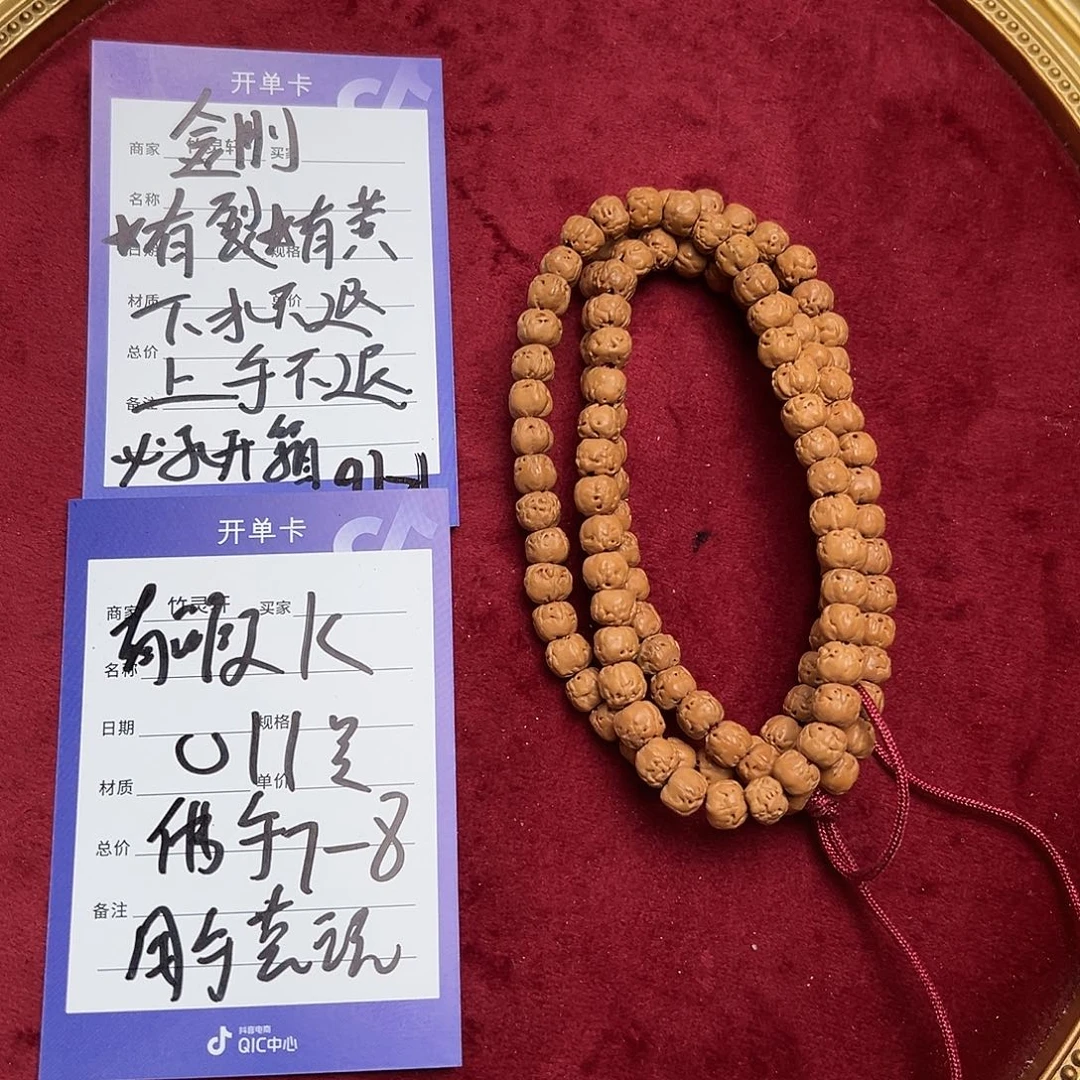 开单卡
金刚
商家 竹灵轩 买家
名称
有裂 有黄
日期 规格
下水不退
材质 单价
总价
上手不退
备注
开箱
开单卡
商家 竹灵轩 买家
有瑕
名称
日期 规格
材质 单价
总价
佛手7-8
备注
用手
抖音电商
QIC中心